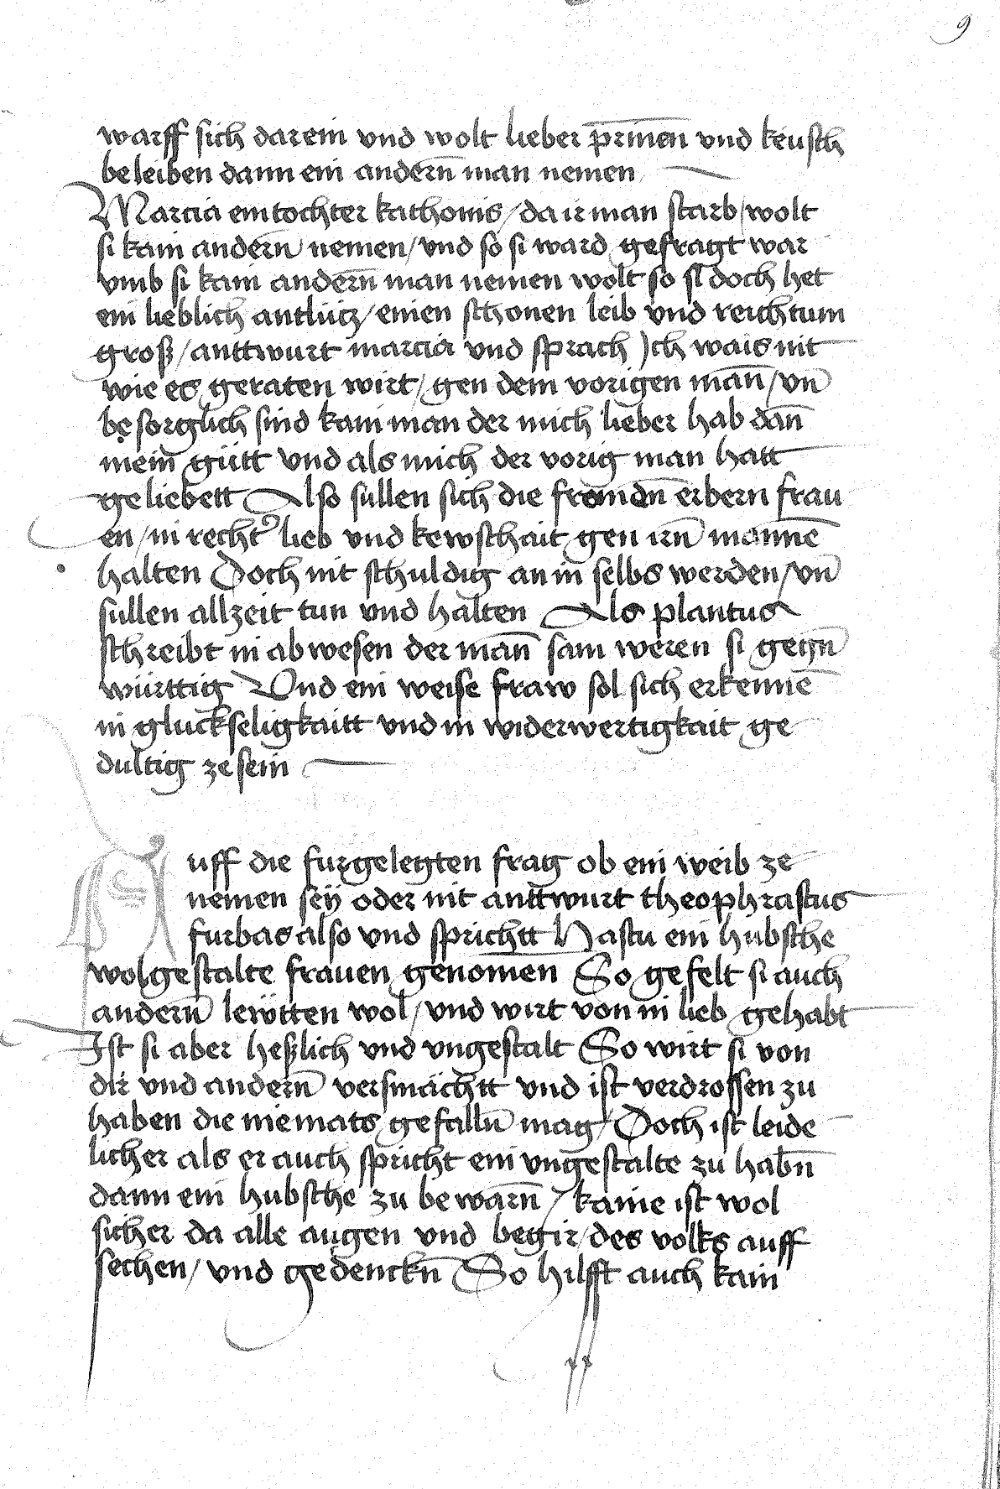 9
warff sich darein vnd wolt lieber prin̄en vnd keusch
beleiben dann ein andern̄ man nemen
Marcia ein tochter kathonis / da ir man starb / wolt
si kain andern̄ nemen / vnd so si ward gefragt war
vmb si kain andern̄ man nemen wolt so si doch het
ein lieblich antlütz / einen schonen leib vnd reichtum
groß / anttwurt marcia vnd sprach Ich wais nit
wie es geraten wirt / gen dem vorigen man̄ / vn̄
besorglich sind kain man der mich lieber hab dan̄
mein gütt vnd als mich der vorig man hatt
geliebett Also sullen sich die fromdn̄ erbern frau
en / in recht' lieb vnd kewschait gen irn̄ mannē
halten Doch nit schuldig an in selbs werden / vn̄
sullen allzeit tun vnd halten Als plantus
schreibt in abwesen der man̄ sam weren si gegn̄
württig Vnd ein weise fraw sol sich erkennē
in gluckseligkaitt vnd in widerwertigkait ge
dultig ze sein
Auff die furgelegten frag ob ein weib ze
nemen seÿ oder nit anttwurt theophrastus
furbas also vnd sprichtt Hastu ein hubsche
wolgestalte frauen genomen So gefelt si auch
andern̄ lewtten wol / vnd wirt von in lieb gehabt
Ist si aber heßlich vnd vngestalt So wirt si von
dir vnd andern̄ versmächtt vnd ist verdrossen zu
haben die niemats gefalln̄ mag / Doch ist leide
licher als er auch spricht ein vngestalte zu habn̄
dann ein hubsche zu bewarn̄ / kaine ist wol
sicher da alle augen vnd begir / des volks auff
sechen / vnd gedenckn̄ So hilfft auch kain